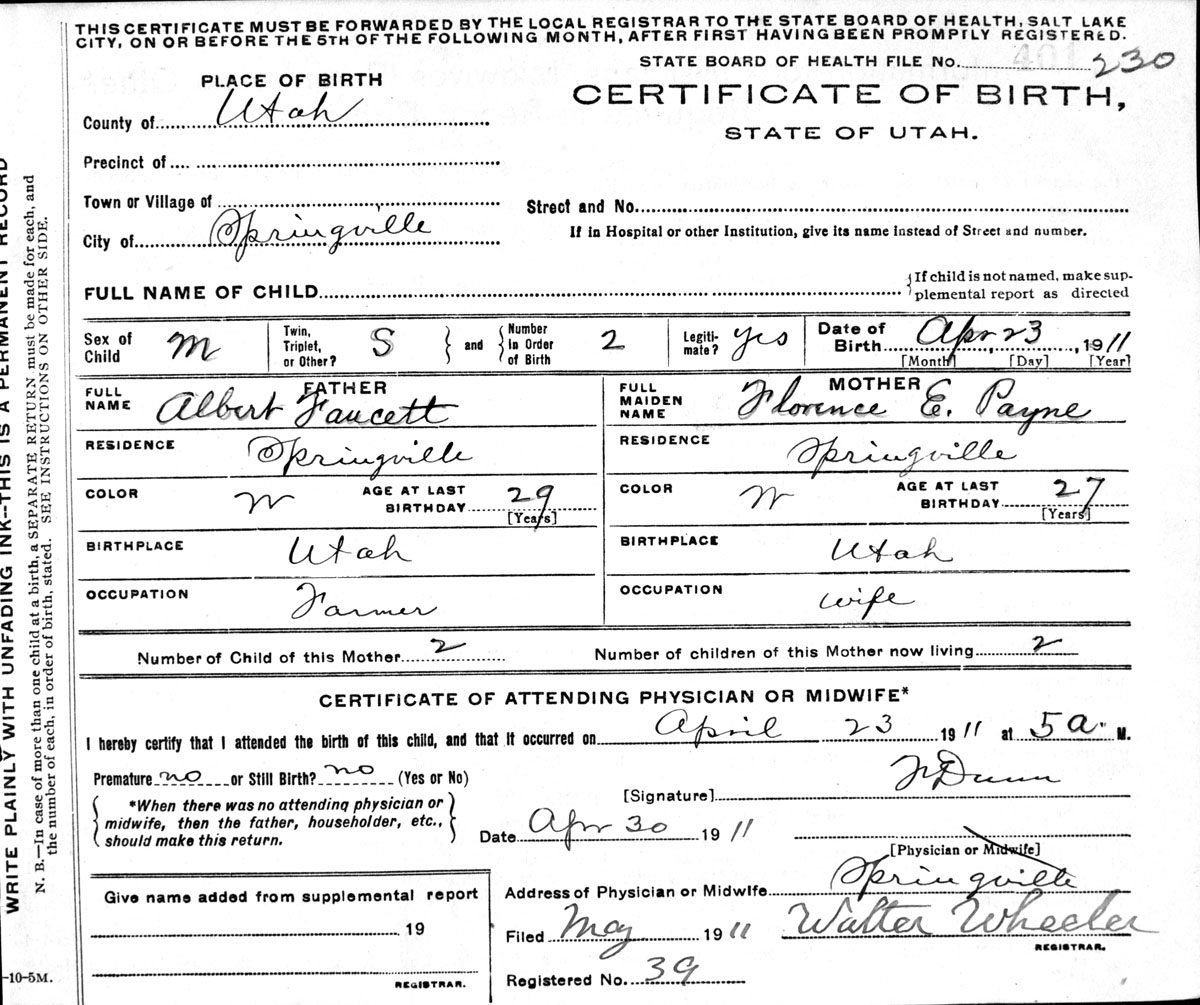 THIS CERTIFICATE MUST BE FORWARDED BY THE LOCAL REGISTRAR TO THE STATE BOARD OF HEALTH, SALT LAKE
CITY, ON OR BEFORE THE 5TH OF THE FOLLOWING MONTH, AFTER FIRST HAVING BEEN PROMPTLY REGISTERED.
STATE BOARD OF HEALTH FILE No. 401 230
PLACE OF BIRTH
CERTIFICATE OF BIRTH,
STATE OF UTAH.
County of Utah
Precinct of
Town or Village of
Street and No.
City of Springville
If in Hospital or other Institution, give its name instead of Street and number.
FULL NAME OF CHILD
If child is not named, make sup-
plemental report as directed
Sex of Child M
Twin, Triplet, or Other? S and Number in Order of Birth 2
Legiti-mate? yes
Date of Birth Apr 23, 1911
[Month] [Day] [Year]
FATHER
FULL NAME Albert Faucett
MOTHER
FULL MAIDEN NAME Florence E. Payne
RESIDENCE Springville
RESIDENCE Springville
COLOR W AGE AT LAST BIRTHDAY 29 [Years]
COLOR W AGE AT LAST BIRTHDAY 27 [Years]
BIRTHPLACE Utah
BIRTHPLACE Utah
OCCUPATION Farmer
OCCUPATION wife
Number of Child of this Mother 2 Number of children of this Mother now living 2
CERTIFICATE OF ATTENDING PHYSICIAN OR MIDWIFE*
I hereby certify that I attended the birth of this child, and that it occurred on April 23 1911 at 5 a. M.
Premature no or Still Birth? no (Yes or No)
[Signature] Dunn
*When there was no attending physician or
midwife, then the father, householder, etc.,
should make this return.
Date Apr 30 1911
[Physician or Midwife]
Address of Physician or Midwife Springville
Give name added from supplemental report
19
REGISTRAR.
Filed May 1911 Walter Wheeler
REGISTRAR.
Registered No. 39
-10-5M.
WRITE PLAINLY WITH UNFADING INK--THIS IS A PERMANENT RECORD
N. B.—In case of more than one child at a birth, a SEPARATE RETURN must be made for each, and
the number of each, in order of birth, stated. SEE INSTRUCTIONS ON OTHER SIDE.